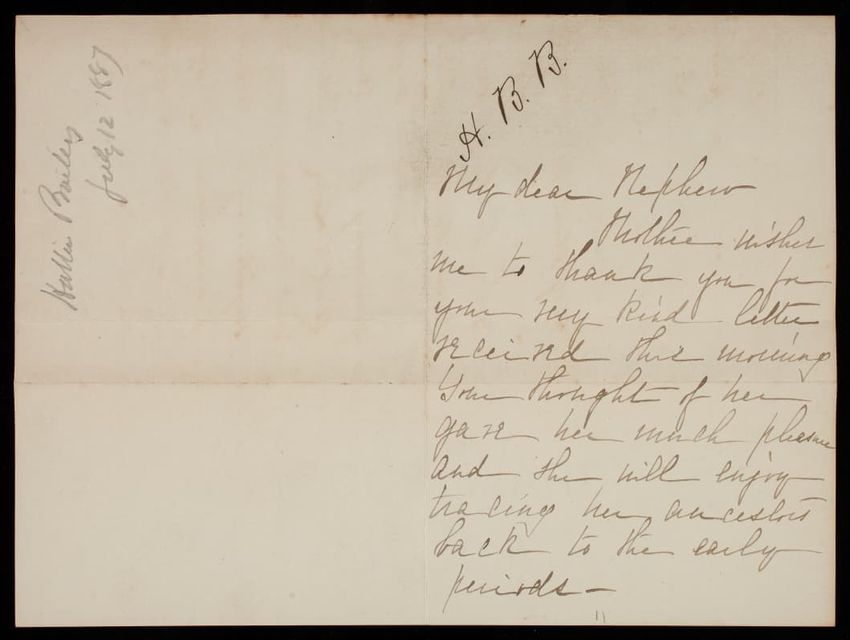 Hattie Bailey
July 12 1887
H. B. B.
My dear Nephew
Mother wishes
me to thank you for
your very kind letter
received this morning
Your thought of her
gave her much pleasure
and she will enjoy
tracing her ancestors
back to the early
periods —